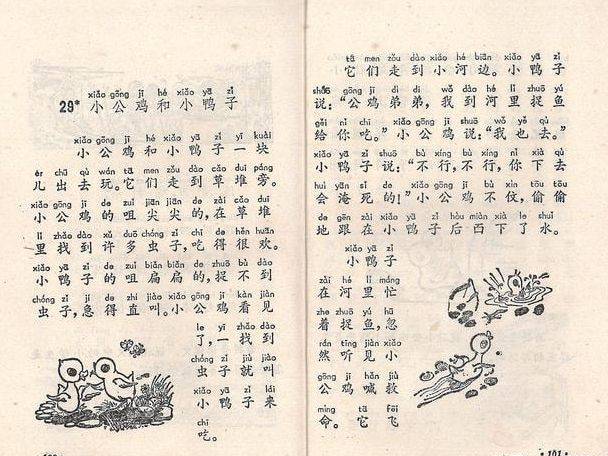 xiǎo gōng jī hé xiǎo yā zǐ
29* 小公鸡和小鸭子
xiǎo gōng jī hé xiǎo yā zǐ yī kuài
小公鸡和小鸭子一块
ér chū qù wán tā men zǒu dào cǎo duī páng
儿出去玩。它们走到草堆旁。
xiǎo gōng jī de zuǐ jiān jiān de zài cǎo duī
小公鸡的咀尖尖的,在草堆
lǐ zhǎo dào xǔ duō chóng zǐ chī de hěn huān
里找到许多虫子,吃得很欢。
xiǎo yā zǐ de zuǐ biǎn biǎn de zhuō bù dào
小鸭子的咀扁扁的,捉不到
chóng zǐ jí de zhí jiào xiǎo gōng jī kàn jiàn
虫子,急得直叫。小公鸡看见
le yī zhǎo dào
了,一找到
chóng zǐ jiù jiào
虫子就叫
xiǎo yā zǐ lái
小鸭子来
chī
吃。
tā men zǒu dào xiǎo hé biān xiǎo yā zǐ
它们走到小河边。小鸭子
shuō gōng jī dì di wǒ dào hé lǐ zhuō yú
说:“公鸡弟弟,我到河里捉鱼
gěi nǐ chī xiǎo gōng jī shuō wǒ yě qù
给你吃。”小公鸡说:“我也去。”
xiǎo yā zǐ shuō bù xíng bù xíng nǐ xià qù
小鸭子说:“不行,不行,你下去
huì yān sǐ de xiǎo gōng jī bù xìn tōu tōu
会淹死的!”小公鸡不伩,偷偷
de gēn zài xiǎo yā zǐ hòu miàn xià le shuǐ
地跟在小鸭子后面下了水。
xiǎo yā zǐ
小鸭子
zài hé lǐ máng
在河里忙
zhe zhuō yú hū
着捉鱼,忽
rán tīng jiàn xiǎo
然听见小
gōng jī hǎn jiù
公鸡喊救
mìng tā fēi
命。它飞
· 101 ·